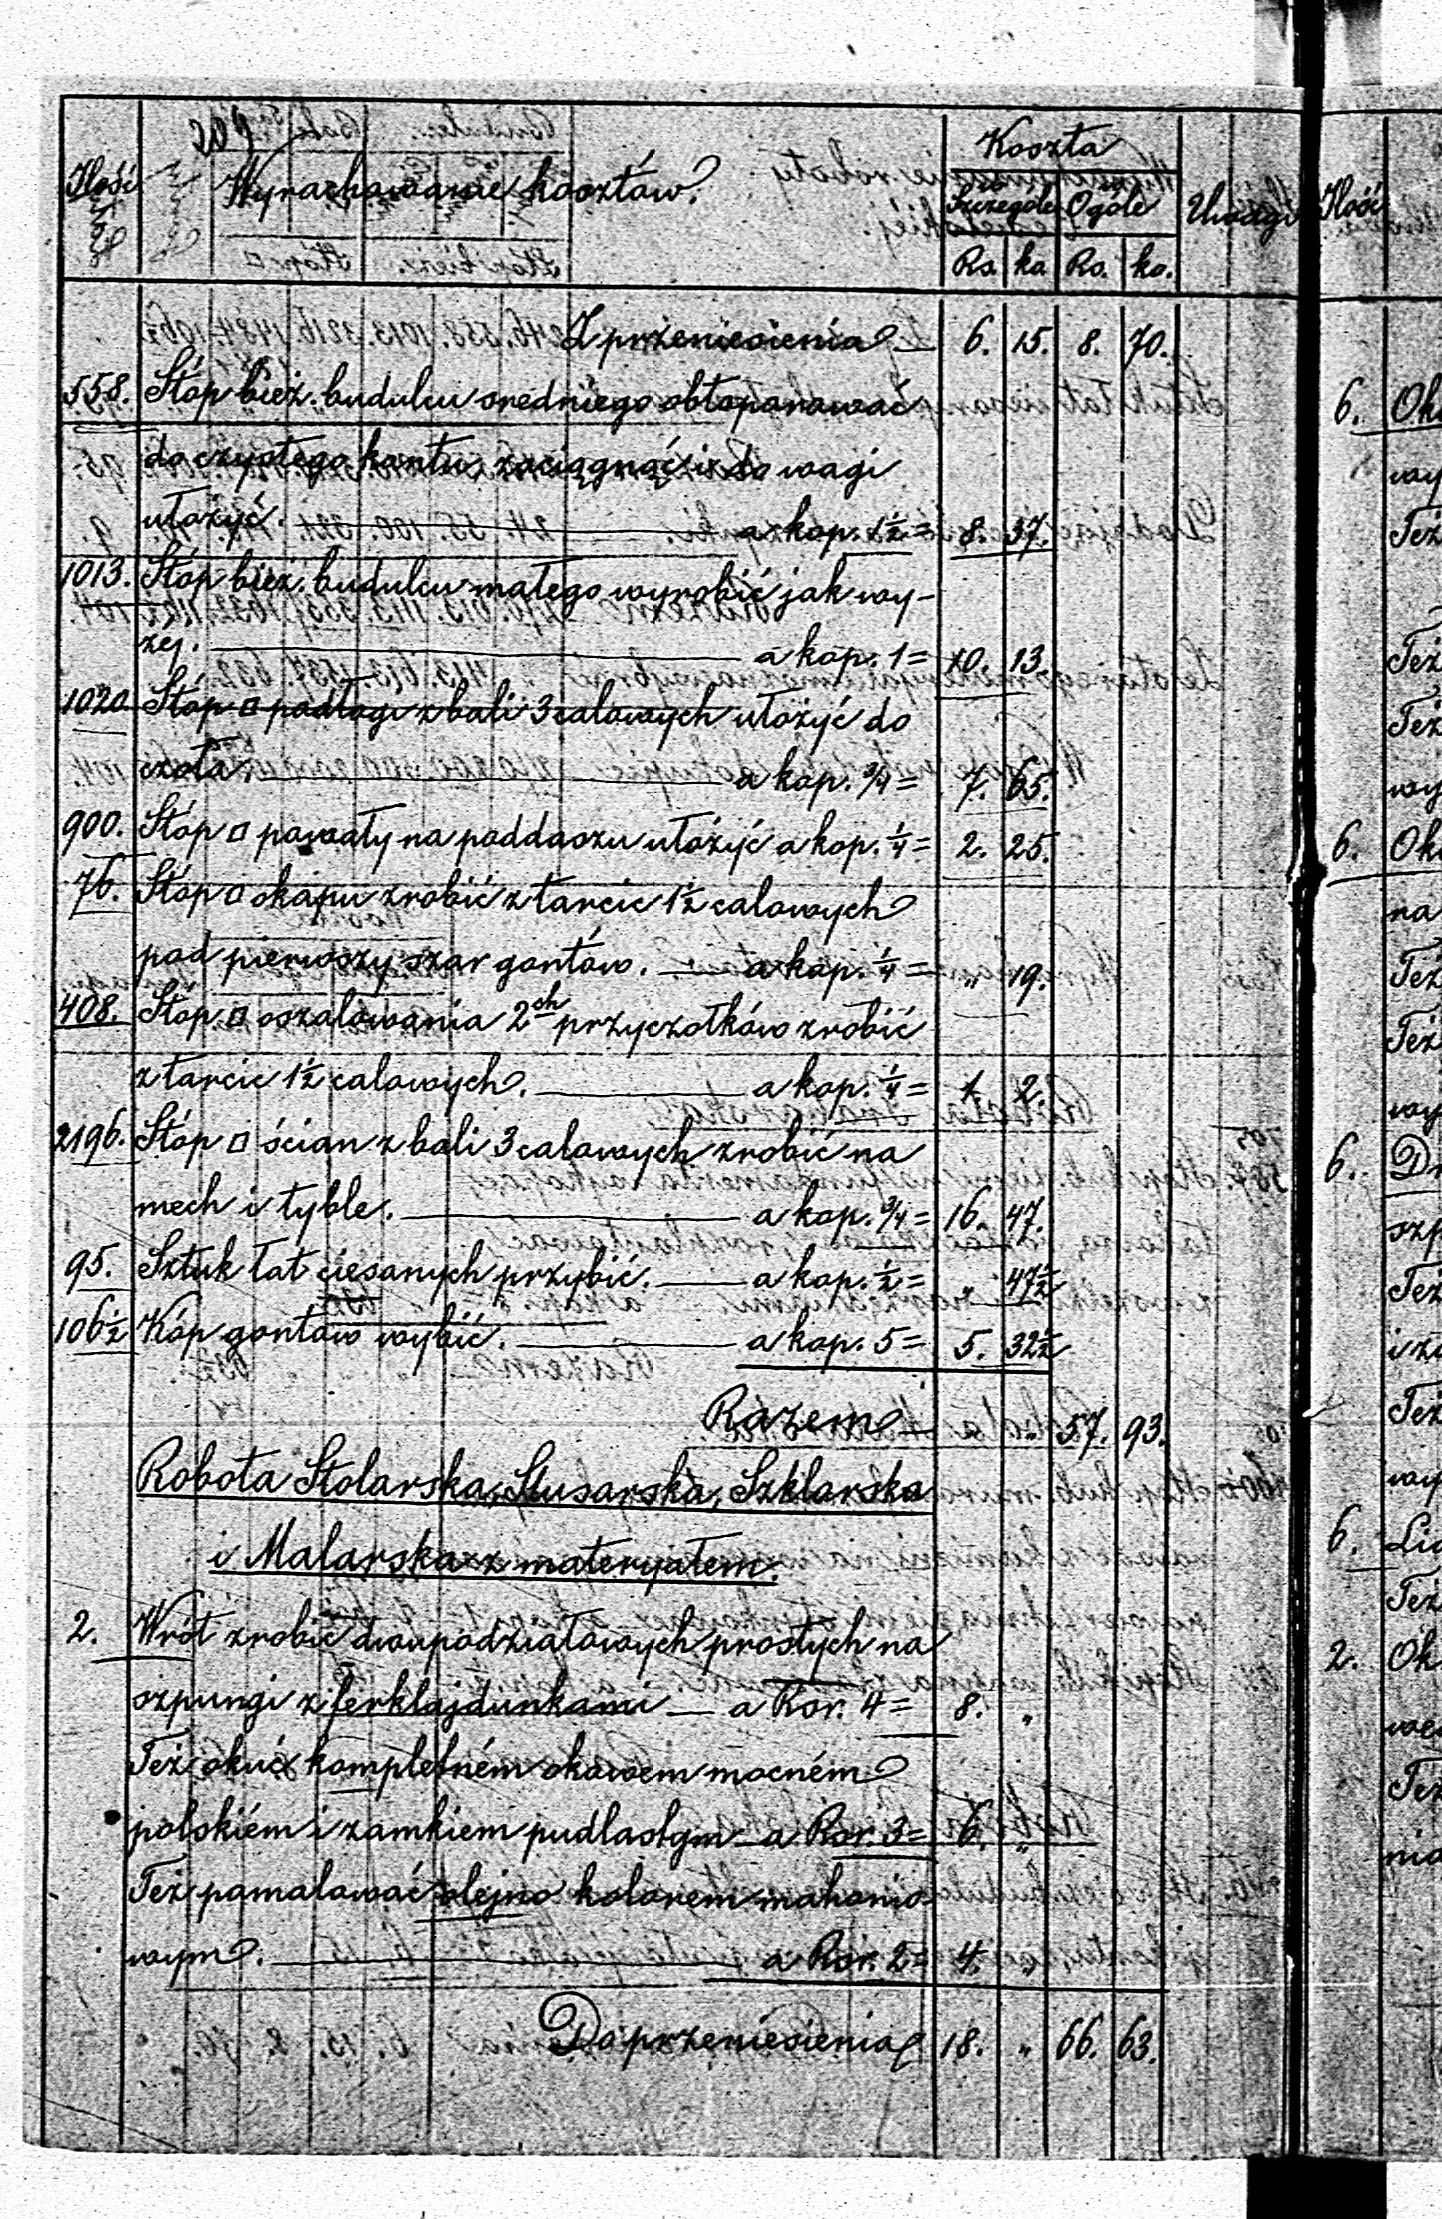 209
Ilość Wyrachowanie kosztów. Koszta Uwagi Ilość
Szczególe Ogóle
Rs. ko. Rs. ko.
Z przeniesienia — 6. 15. 8. 70.
558. Stóp bież. budulcu średniego obtoporować
do czystego kantu, zaciągnąć i do wagi
ułożyć. — a kop. 1½ = 8. 37.
1013. Stóp bież. budulcu małego wyrobić jak wy-
żej. — a kop. 1 = 10. 13.
1020 Stóp □ podłogi z bali 3 calowych ułożyć do
czoła. — a kop. ¾ = 7. 65.
900. Stóp □ powały na poddaszu ułożyć a kop. ¼ = 2. 25.
76. Stóp □ okapu zrobić z tarcic 1½ calowych
pod pierwszy szar gontów. — a kop. ¼ = „ 19.
408. Stóp □ oszalowania 2ch przyczołków zrobić
z tarcic 1½ calowych. — a kop. ¼ = 1. 2.
2196. Stóp □ ścian z bali 3 calowych zrobić na
mech i tyble. — a kop. ¾ = 16. 47.
95. Sztuk łat ciesanych przybić. — a kop. ½ = „ 47½
106½ Kóp gontów wybić. — a kop. 5 = 5. 32½
Razem — „ 57. 93.
Robota Stolarska, Slusarska, Szklarska
i Malarska z materyałem.
2. Wrót zrobić dwupodziałowych prostych na
szpungi z ferklajdunkami — a Rsr. 4 = 8. „
Też okuć kompletném okowem mocném
polskiém i zamkiem pudlastym — a Rsr. 3 = 6. „
Też pomalować olejno kolorem mahonio-
wym. — a Rsr. 2 = 4. „
Do przeniesienia 18. „ 66. 63.
6.
wy
Też
Też
Też
wy
6.
na
Też
Też
wy
6.
Też
Też
6.
Też
2.
Też